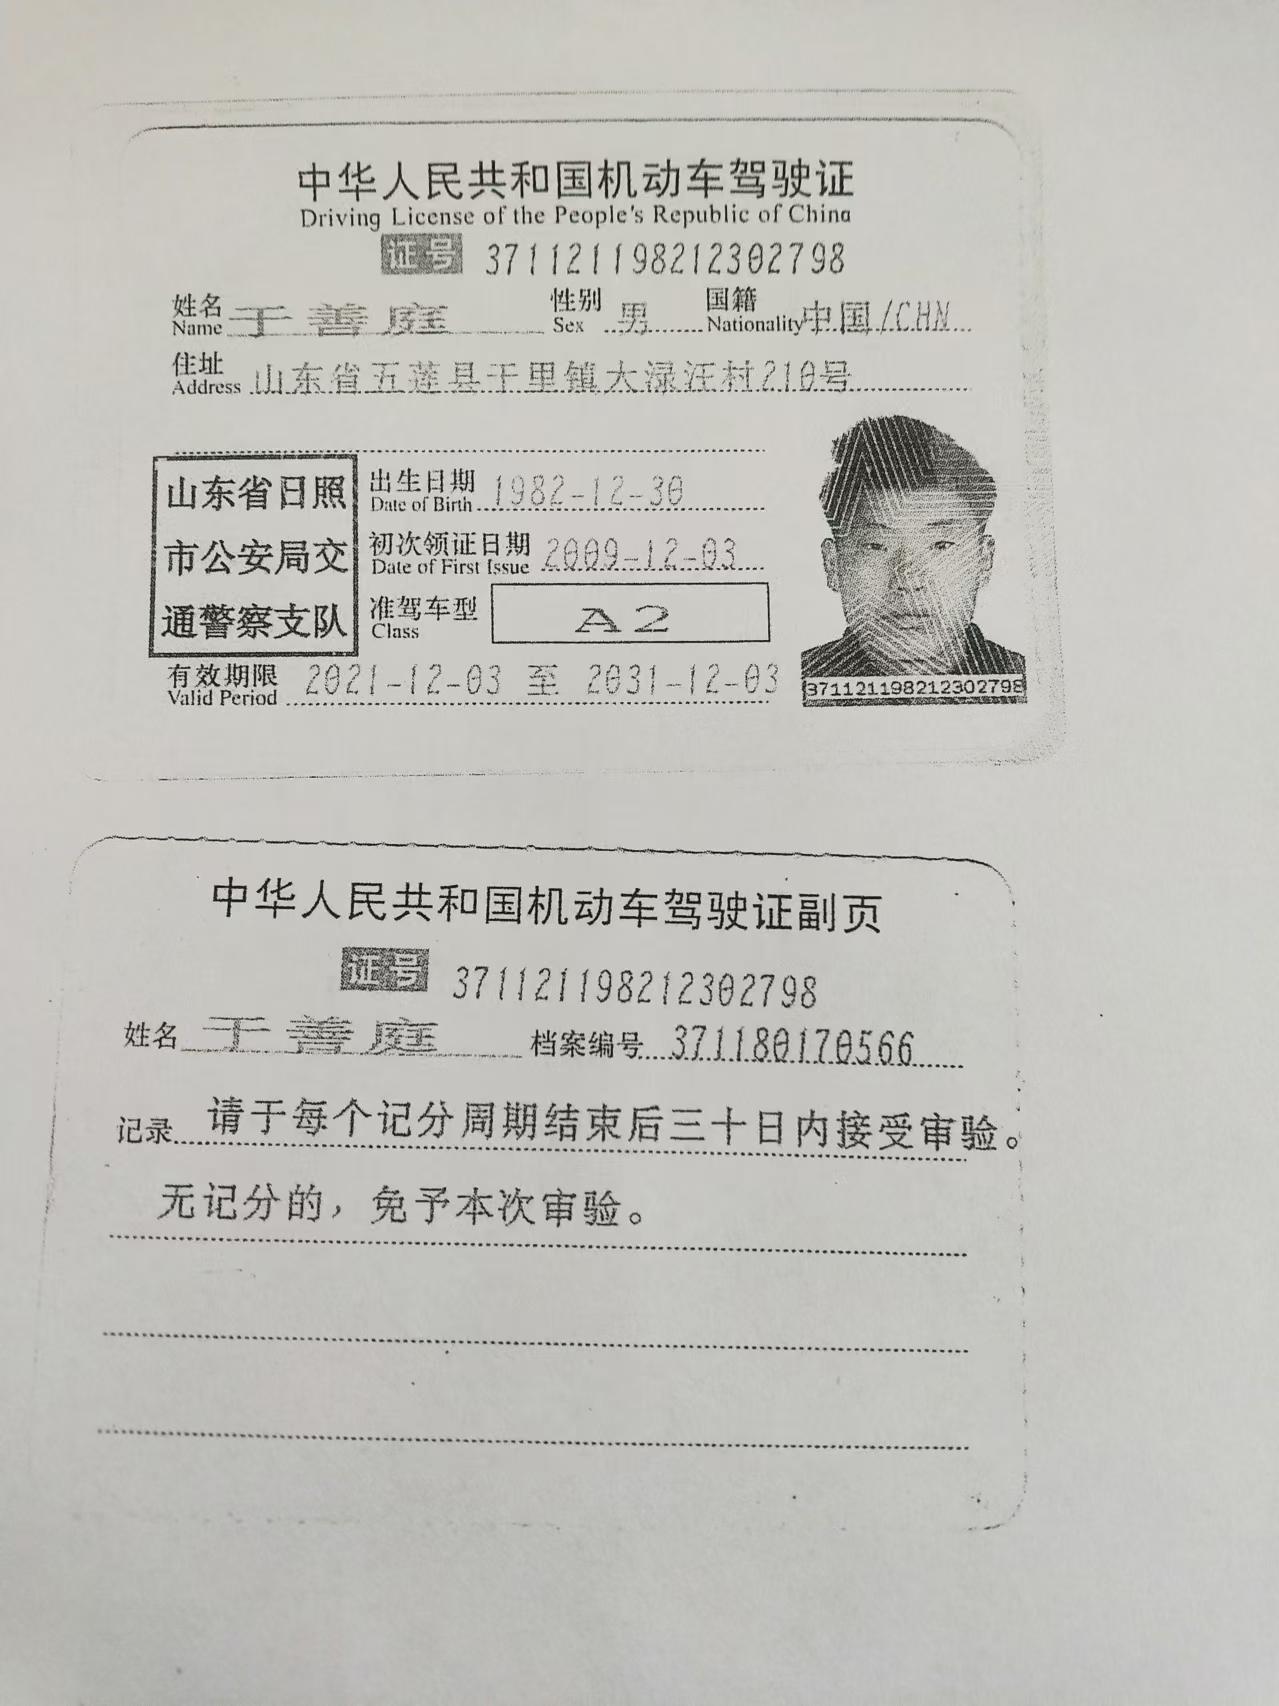 中华人民共和国机动车驾驶证
Driving License of the People's Republic of China
证号 371121198212302798
姓名 于善庭 性别 男 国籍 中国/CHN
Name Sex Nationality
住址 山东省五莲县于里镇大渌汪村210号
Address
山东省日照
市公安局交
通警察支队
出生日期 1982-12-30
Date of Birth
初次领证日期 2009-12-03
Date of First Issue
准驾车型 A2
Class
有效期限 2021-12-03 至 2031-12-03
Valid Period
371121198212302798
中华人民共和国机动车驾驶证副页
证号 371121198212302798
姓名 于善庭 档案编号 371180170566
记录 请于每个记分周期结束后三十日内接受审验。
无记分的，免予本次审验。